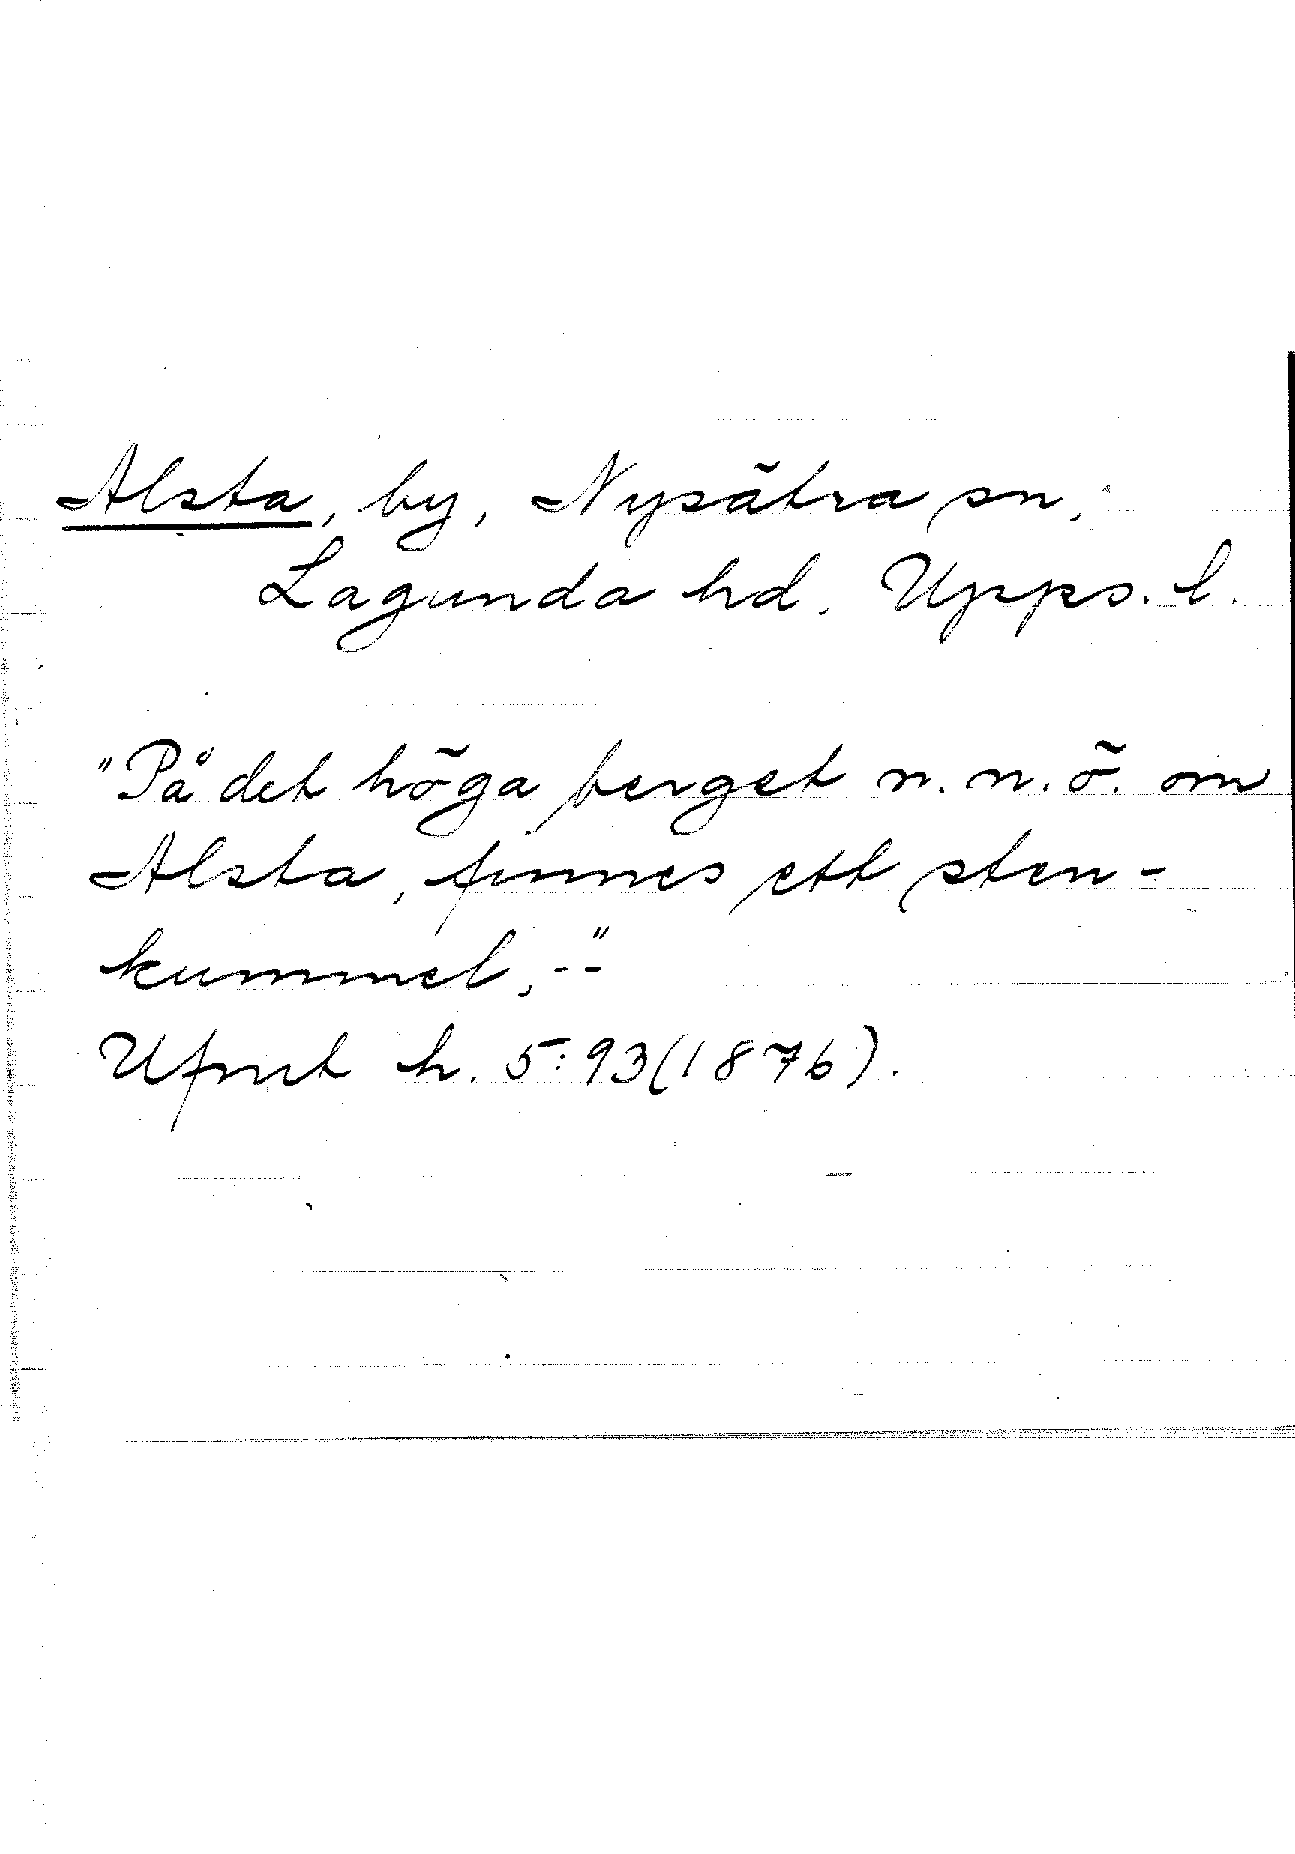 Alsta, by, Nysätra sn,
Lagunda hd. Upps. l.
"På det höga berget n. n. ö. om
Alsta, finnes ett sten-
kummel, --"
Ufmt h. 5:93 (1876).